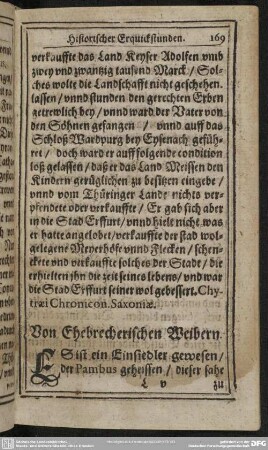 Historischer Erquickstunden. 169
verkauffte das Land Keyser Adolfen vmb
zwey vnd zwantzig tausend Marck / Sol-
ches wolte die Landschafft nicht geschehen
lassen / vnnd stunden den gerechten Erben
getrewlich bey / vnnd ward der Vater von
den Söhnen gefangen / vnnd auff das
Schloß Wardpurg bey Eysenach gefüh-
ret / doch ward er auff folgende condition
loß gelassen / daß er das Land Meissen den
Kindern gerüglichen zu besitzen eingebe /
vnnd vom Thüringer Lande nichts ver-
pfendete oder verkauffte / Er gab sich aber
in die Stad Erffurt / vnnd hielt nicht was
er hatte angelobet / verkauffte der stad wol-
gelegene Meyerhöfe vnnd Flecken / schen-
ckete vnd verkauffte solches der Stadt / die
erhielten jhn die zeit seines lebens / vnd war
die Stad Erffurt seiner wol gebessert. Chy-
træi Chronicon. Saxoniæ.
Von Ehebrecherischen Weibern
ES ist ein Einsiedler gewesen /
der Pambus geheissen / dieser sahe
L v zu